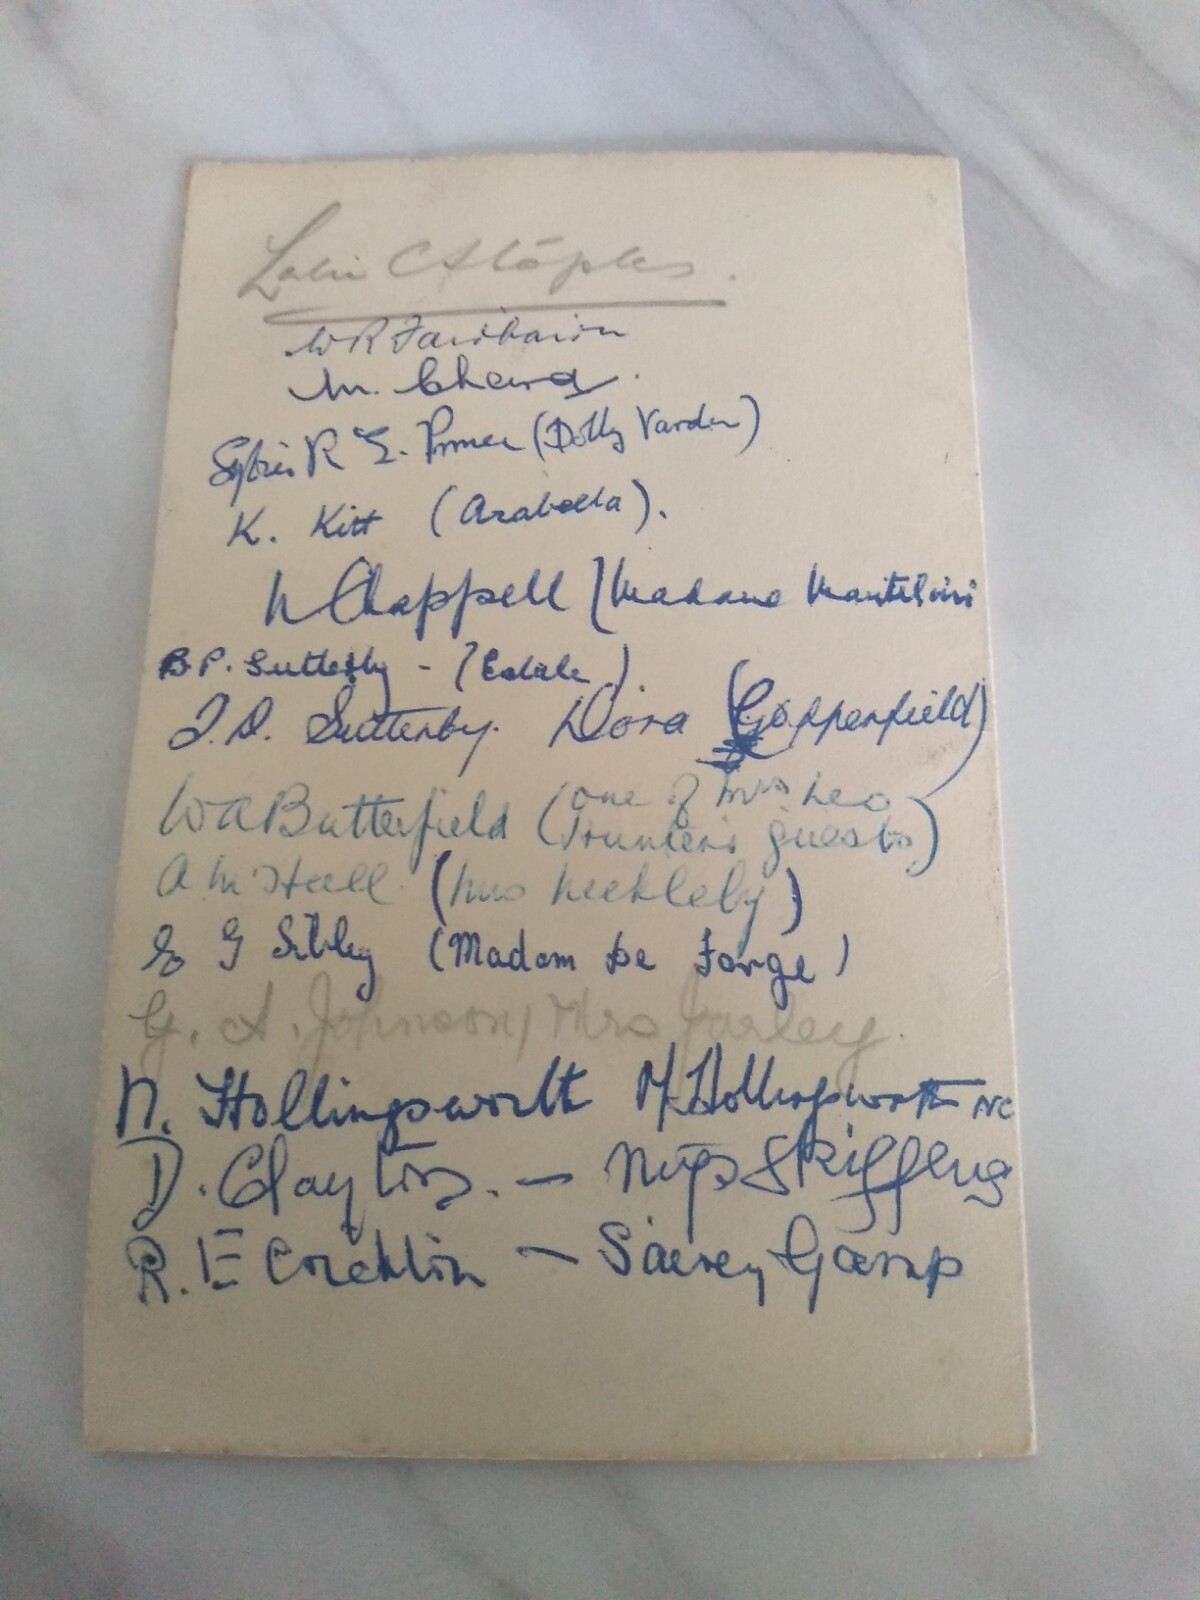 C Staples.
W R Fairbairn
M. Cheard.
R E. (Dolly Varden)
K. Kitt (Arabella).
N Chappell (Madame Mantelini
B.P. Sutterby - (Estele)
J.D. Sutterby. Dora (Copperfield)
W A Butterfield (one of Mrs Leo
Hunters guests)
A M Hall (Mrs Nickleby)
E G Sibley (Madam De Farge)
G. A. Johnson, Mrs Jarley.
N. Hollingsworth M. Hollingsworth NC
D. Clayton. — Miss Skiffens
R. E — Sairey Gamp